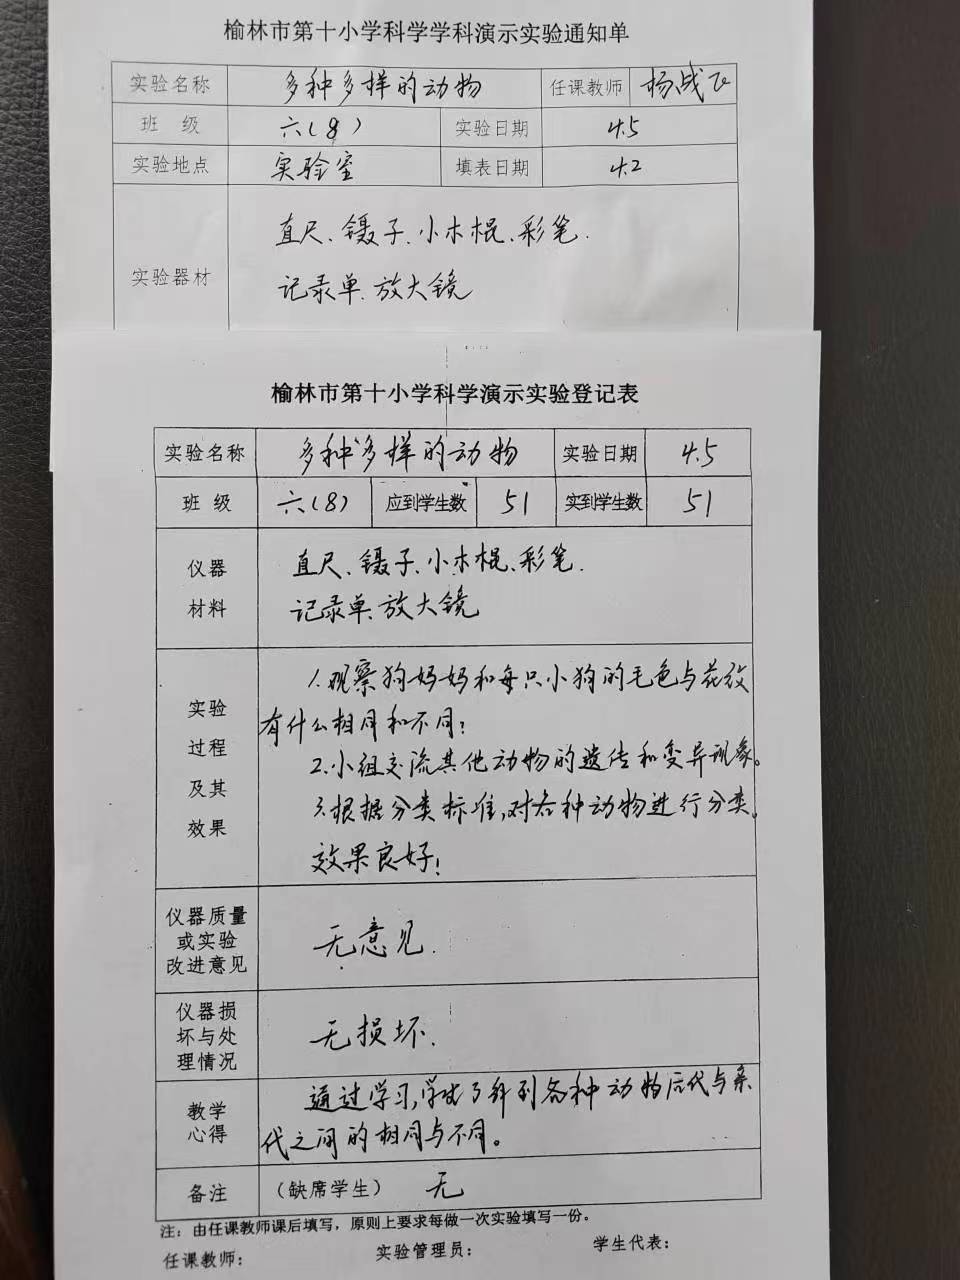 榆林市第十小学科学学科演示实验通知单
实验名称 多种多样的动物 任课教师 杨战飞
班 级 六(8) 实验日期 4.5
实验地点 实验室 填表日期 4.2
直尺、镊子、小木棍、彩笔.
实验器材
记录单、放大镜
榆林市第十小学科学演示实验登记表
实验名称 多种多样的动物 实验日期 4.5
班 级 六(8) 应到学生数 51 实到学生数 51
仪器 直尺、镊子、小木棍、彩笔.
材料 记录单、放大镜
1.观察狗妈妈和每只小狗的毛色与花纹
实验
有什么相同和不同?
过程
2.小组交流其他动物的遗传和变异现象。
及其
3.根据分类标准,对各种动物进行分类。
效果
效果良好!
仪器质量
或实验 无意见.
改进意见
仪器损
坏与处 无损坏.
理情况
通过学习,学生了解到各种动物后代与亲
教学
心得 代之间的相同与不同。
备注 (缺席学生) 无
注:由任课教师课后填写,原则上要求每做一次实验填写一份。
任课教师: 实验管理员: 学生代表: